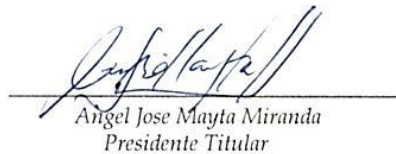 Angel Jose Mayta Miranda
Presidente Titular